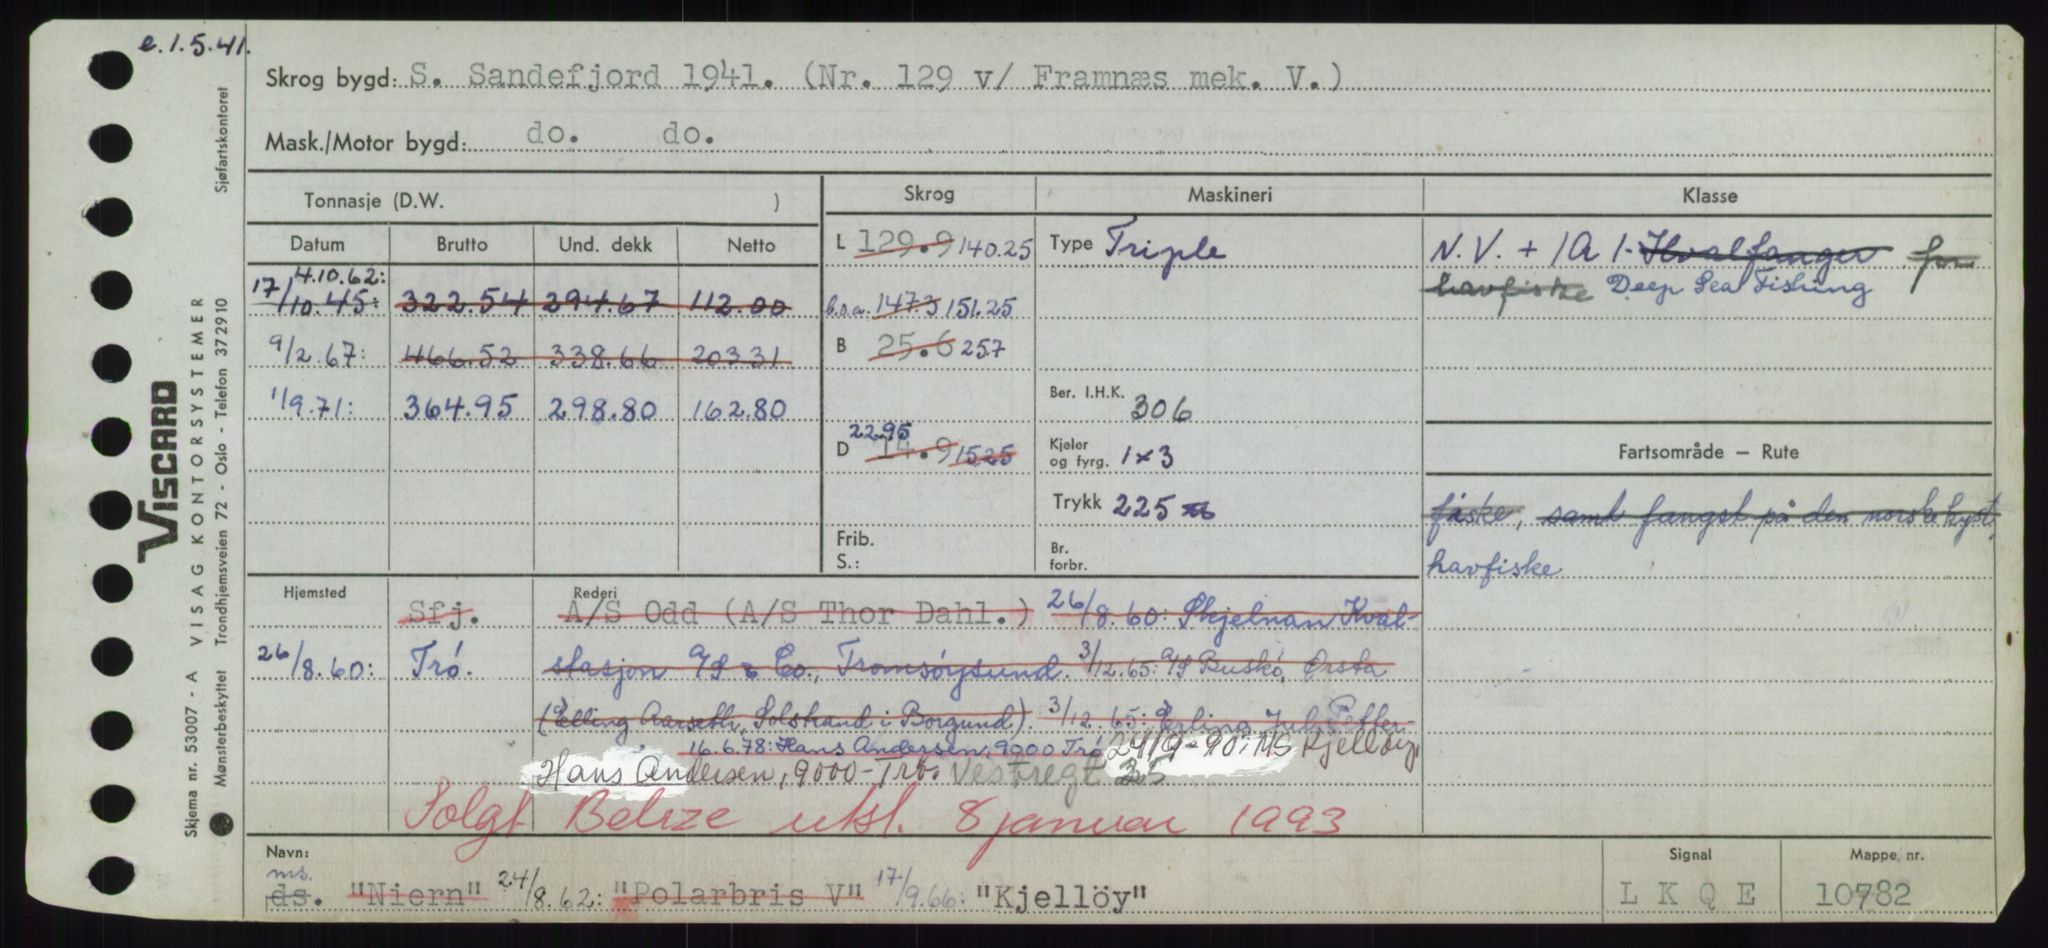 e.1.5.41.
Skrog bygd: S. Sandefjord 1941. (Nr. 129 v/ Framnæs mek. V.)
Mask./Motor bygd: do. do.
Tonnasje (D.W. )
Skrog
Maskineri
Klasse
Datum Brutto Und. dekk Netto
4.10.62:
17/10.45: 322.54 294.67 112.00
9/2.67: 466.52 338.66 203.31
1/9.71: 364.95 298.80 162.80
L 129.9 140.25
b.o.a. 147.3 151.25
B 25.6 25.7
22.95
D 14.9 15.25
Frib.
S.:
Type Triple
Ber. I.H.K. 306
Kjeler og fyrg. 1x3
Trykk 225 lb
Br. forbr.
N.V. + 1A 1. Hvalfanger for
havfiske Deep Sea Fishing
Fartsområde — Rute
fiske, samt fangst på den norske kyst,
havfiske
Hjemsted
Rederi
Sfj. A/S Odd (A/S Thor Dahl.) 26/8.60: Skjelnan Kval-
26/8.60: Trö. stasjon A/S & Co., Tromsöysund. 3/12.65: A/S Buskö, Örsta
(Elling Aarseth, Solstrand i Borgund). 3/12.65: Erling Jul. Petter-
16.6.78: Hans Andersen, 9000 Trö 24/9-90: MS Kjellöy,
Hans Andersen, 9000-Trö. Vestregt 35
Solgt Belize utsl. 8 januar 1993
Navn:
ms.
ds. "Niern" 24/8.62: "Polarbris V" 17/9.66: "Kjellöy"
Signal
L K Q E
Mappe nr.
10782
VISCARD
VISAG KONTORSYSTEMER
Skjema nr. 53007 - A
Mønsterbeskyttet Trondhjemsveien 72 - Oslo - Telefon 372910 Sjøfartskontoret